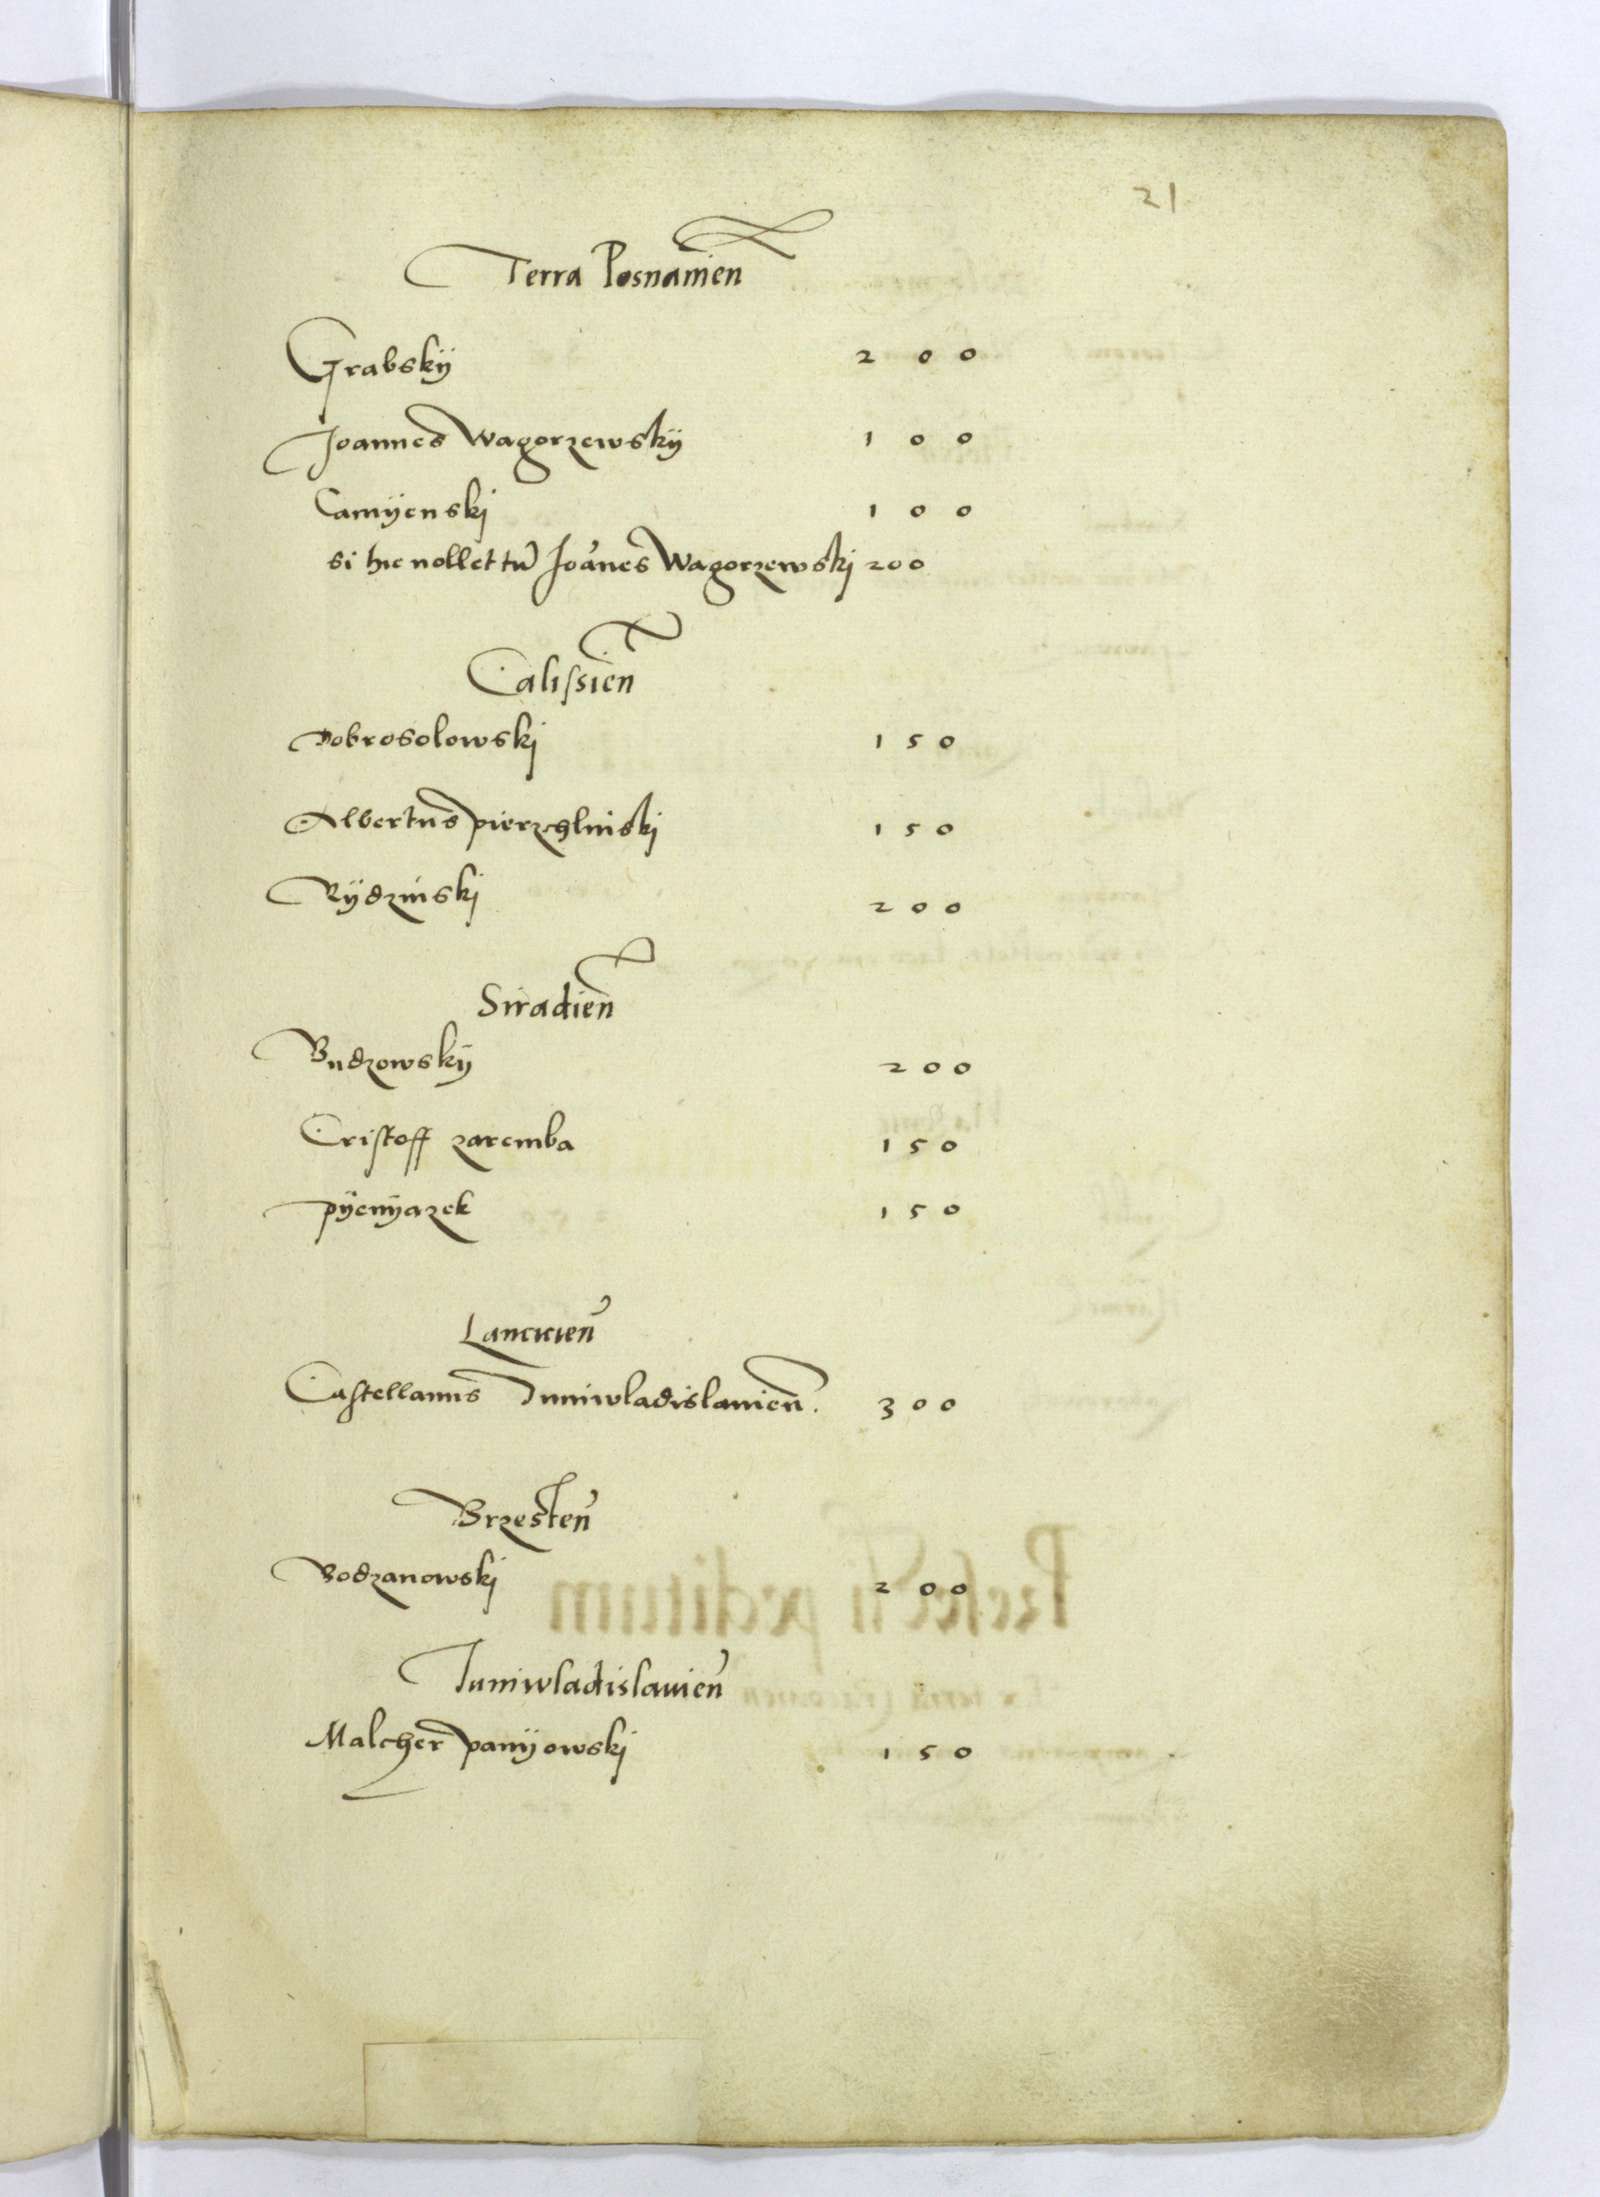 21
Terra Posnanien
Grabskÿ 200
Joannes Wagorzewskÿ 100
Camÿenskj 100
si hic nollet tu Joanes Wagorzewskj 200
Calissien
Dobrosolowskj 150
Albertus pierzchlinskj 150
Rÿdzinskj 200
Siradien
Budzowskÿ 200
Cristoff zaremba 150
pÿenÿazek 150
Lancicien
Castellanus Juniwladislauien. 300
Brzesten
Bodzanowskj 200
Juniwladislauien
Malcher panÿowskj 150